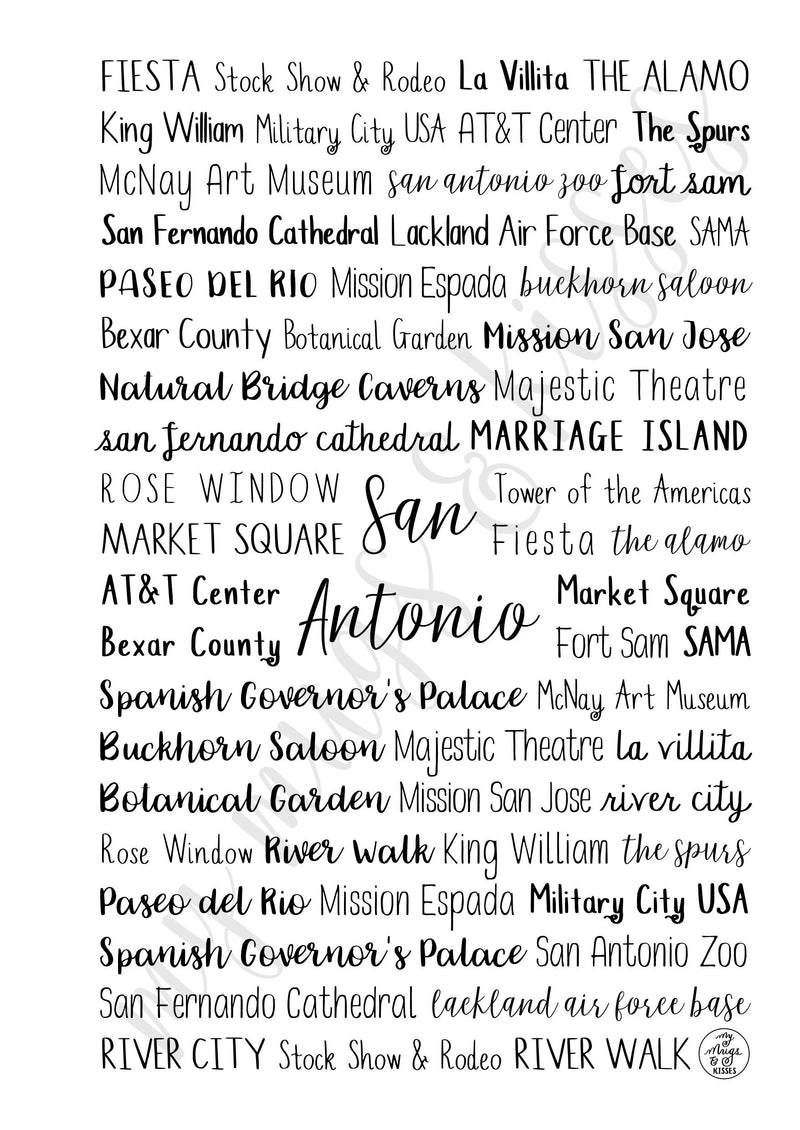 FIESTA Stock Show & Rodeo La Villita THE ALAMO
King William Military City USA AT&T Center The Spurs
McNay Art Museum san antonio zoo fort sam
San Fernando Cathedral Lackland Air Force Base SAMA
PASEO DEL RIO Mission Espada buckhorn saloon
Bexar County Botanical Garden Mission San Jose
Natural Bridge Caverns Majestic Theatre
san fernando cathedral MARRIAGE ISLAND
ROSE WINDOW San Tower of the Americas
MARKET SQUARE Fiesta the alamo
AT&T Center Antonio Market Square
Bexar County Fort Sam SAMA
Spanish Governor's Palace McNay Art Museum
Buckhorn Saloon Majestic Theatre la villita
Botanical Garden Mission San Jose river city
Rose Window River Walk King William the spurs
Paseo del Rio Mission Espada Military City USA
Spanish Governor's Palace San Antonio Zoo
San Fernando Cathedral lackland air force base
RIVER CITY Stock Show & Rodeo RIVER WALK
my Mugs & KISSES
my mugs & kisses